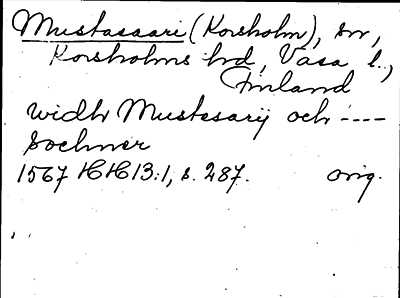 Mustasaari (Korsholm), sn,
Korsholms hrd, Vasa l.,
Finland
widh Mustesarÿ och ----
sochner
1567 HH 13:1, s. 287. orig.